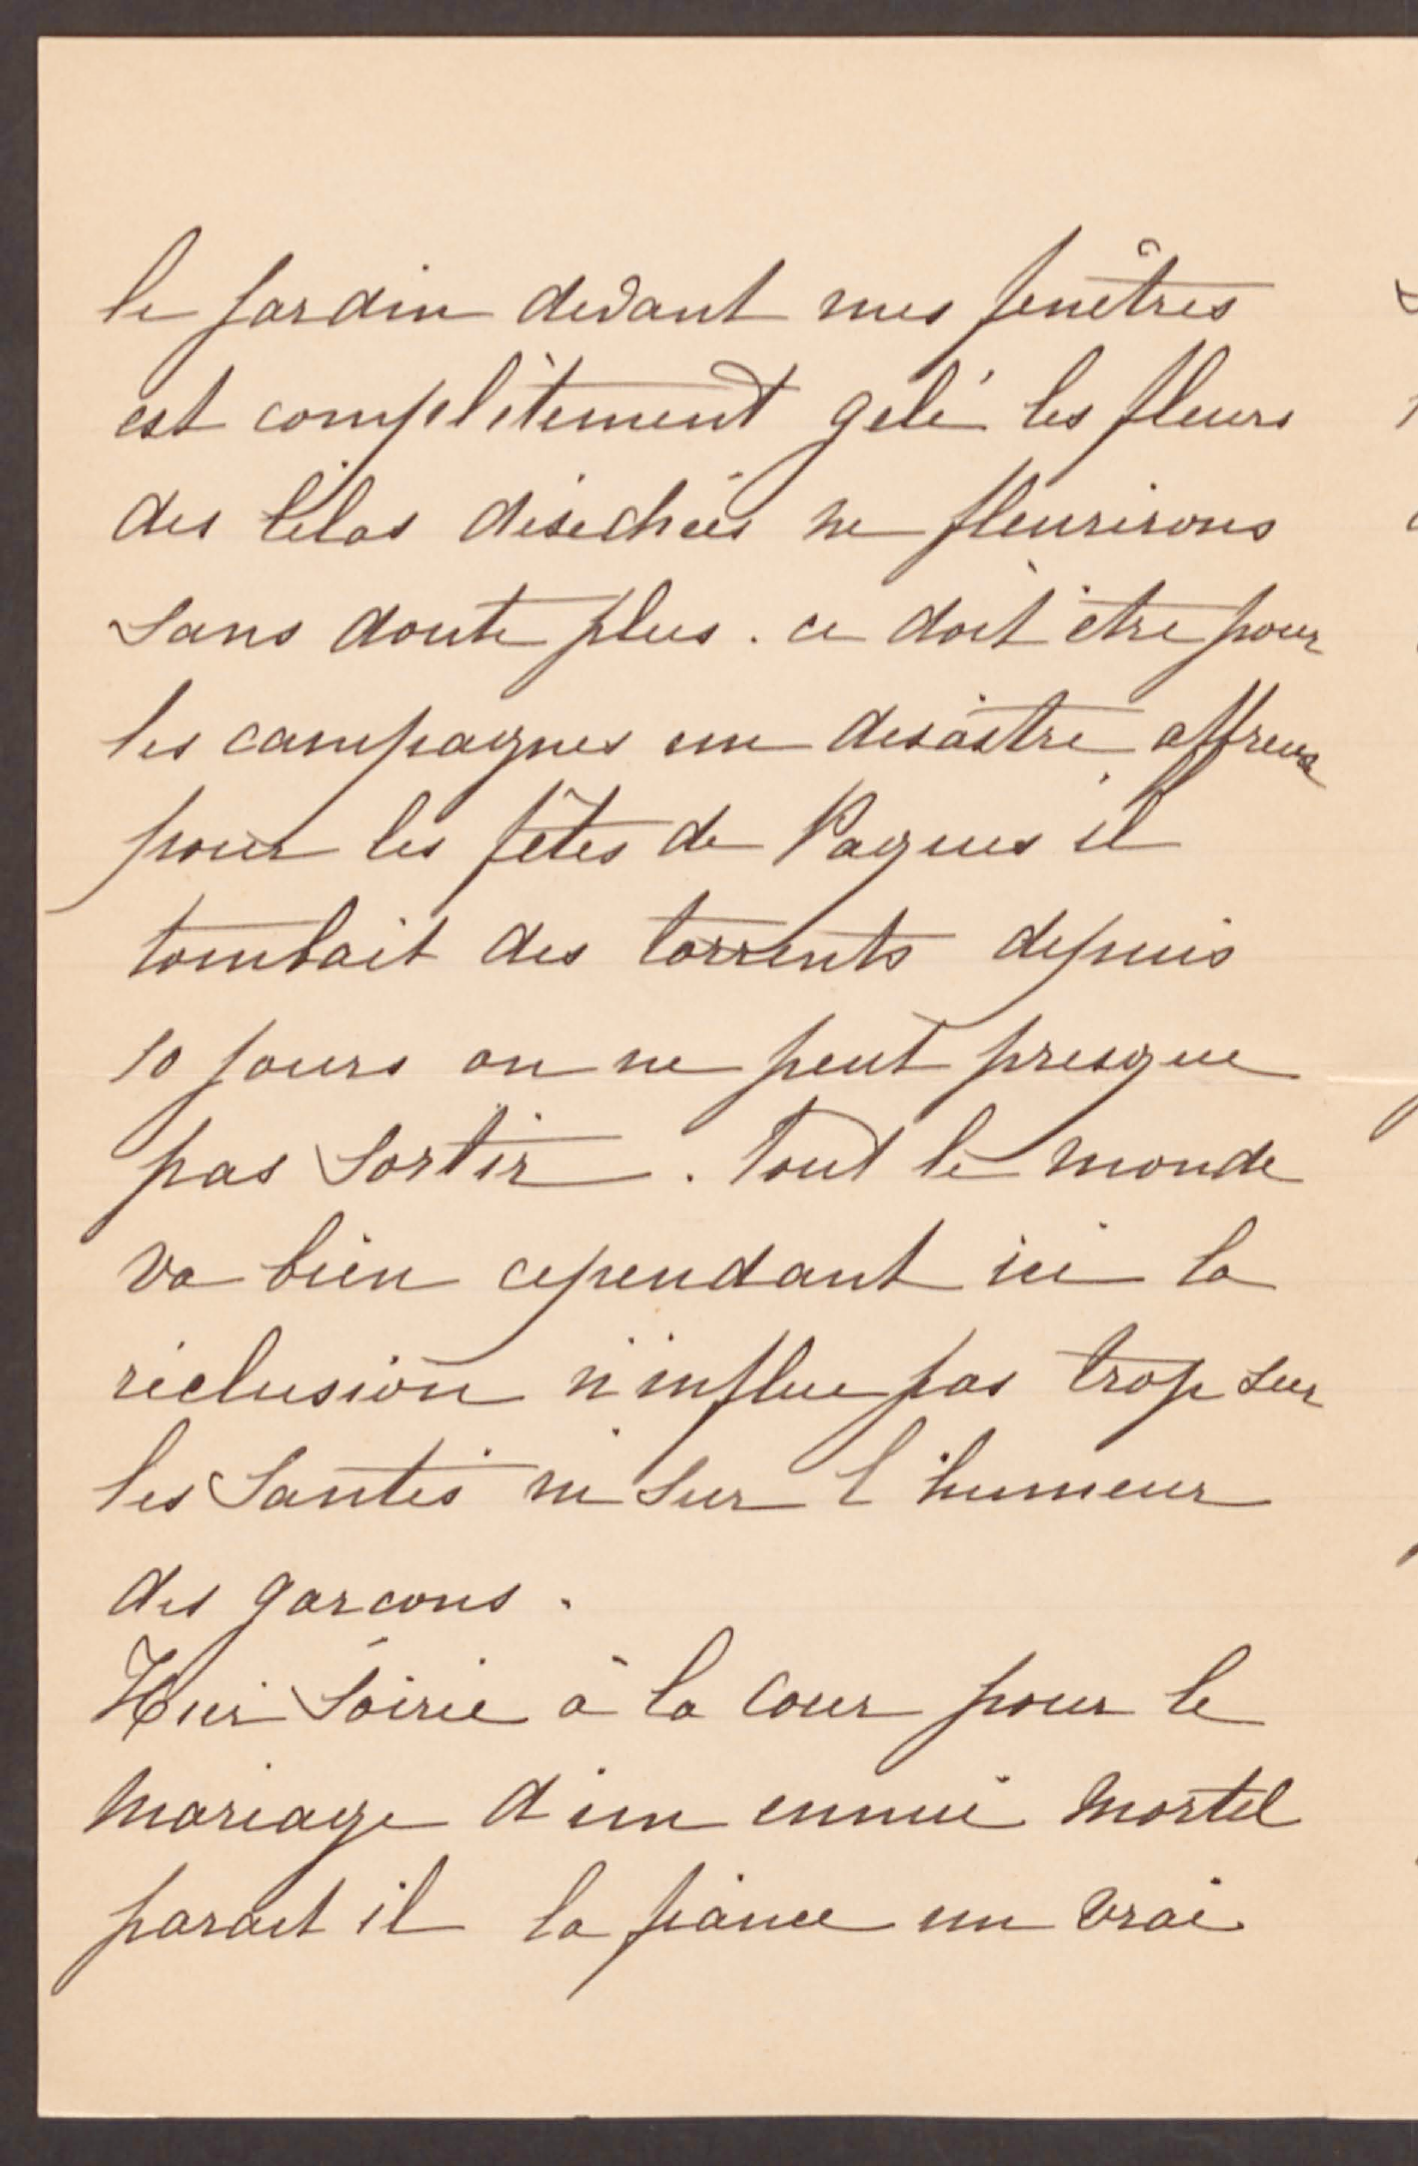 le jardin devant mes fenêtres
est complètement gelé les fleurs
des lilas déséchées ne fleurirons
sans doute plus. ce doit être pour
les campagnes un desastre affreux
pour les fêtes de Paques il
tombait des torrents depuis
10 jours on ne peut presque
pas sortir. Tout le monde
va bien cependant ici la
réclusion n'influe pas trop sur
les santés ni sur l'humeur
des garcons.
Hier soirée à la cour pour le
mariage d'un ennui mortel
parait il la fiance un vrai